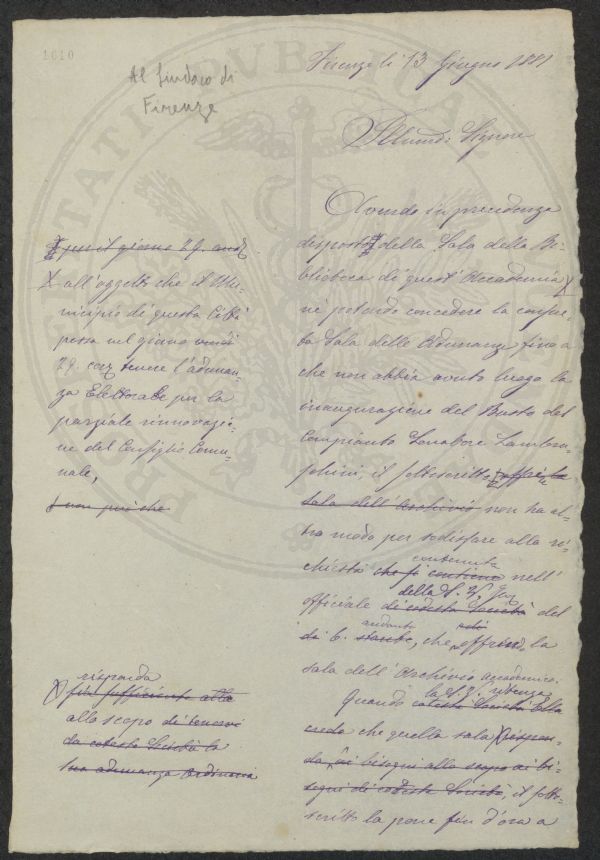 1610
Al Sindaco di
Firenze
Firenze li 13 Giugno 1881
Illmo Signore
Avendo in precedenza
disposto della Sala della Bi-
blioteca di quest'Accademia
nè potendo concedere la consue-
ta Sala delle Adunanze fino a
che non abbia avuto luogo la
inaugurazione del Busto del
Compianto Senatore Lambru-
schini, il sottoscritto offre la
sala dell'Archivio non ha al-
tro modo per sodisfare alla ri-
contenuta
chiesta che si contiene nell'
della S. V.
officiale di codesta Società del
andante
dì 6. stante, che offrendo la
sala dell'Archivio Accademico.
Quando codesta Società Ella
la S. V. ritenga
creda che quella sala rispon-
da ai bisogni allo scopo ai bi-
sogni di codesta Società, il sotto-
scritto la pone fin d'ora a
per il giorno 29. and
X all'oggetto che il Mu-
nicipio di questa Città
possa nel giorno venti
29. corr tenere l'adunan-
za Elettorale per la
parziale rinnovazio-
ne del Consiglio Comu-
nale,
e non più che
risponda
sia sufficiente alla
allo scopo di tenervi
da codesta Società la
sua adunanza ordinaria